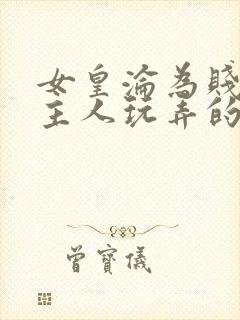 女皇淪為賤
主人玩弄的
曾寶儀